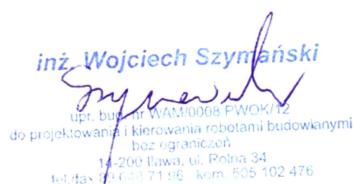 inż. Wojciech Szymański
upr. bud. nr WAM/0008 PWOK/12
do projektowania i kierowania robotami budowlanymi
bez ograniczeń
14-200 Iława, ul. Rolna 34
tel./fax 71 96 kom. 505 102 476